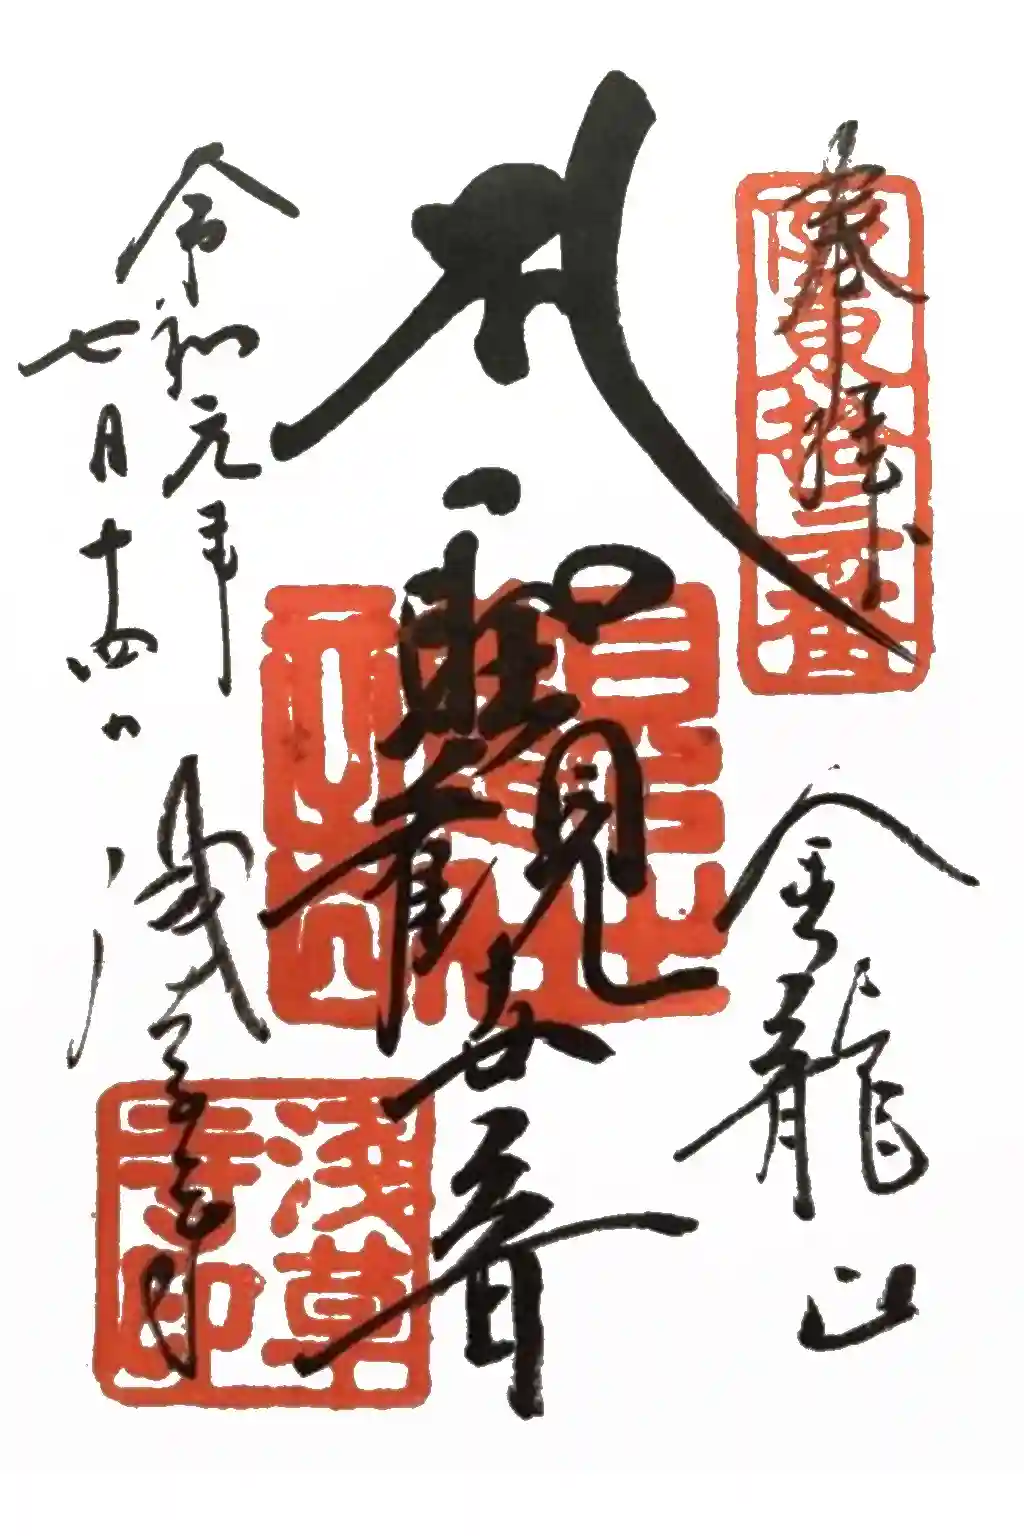 奉拝
坂東拾三番
金龍山
聖観世音
令和元年
七月十四日
浅草寺
浅草寺印